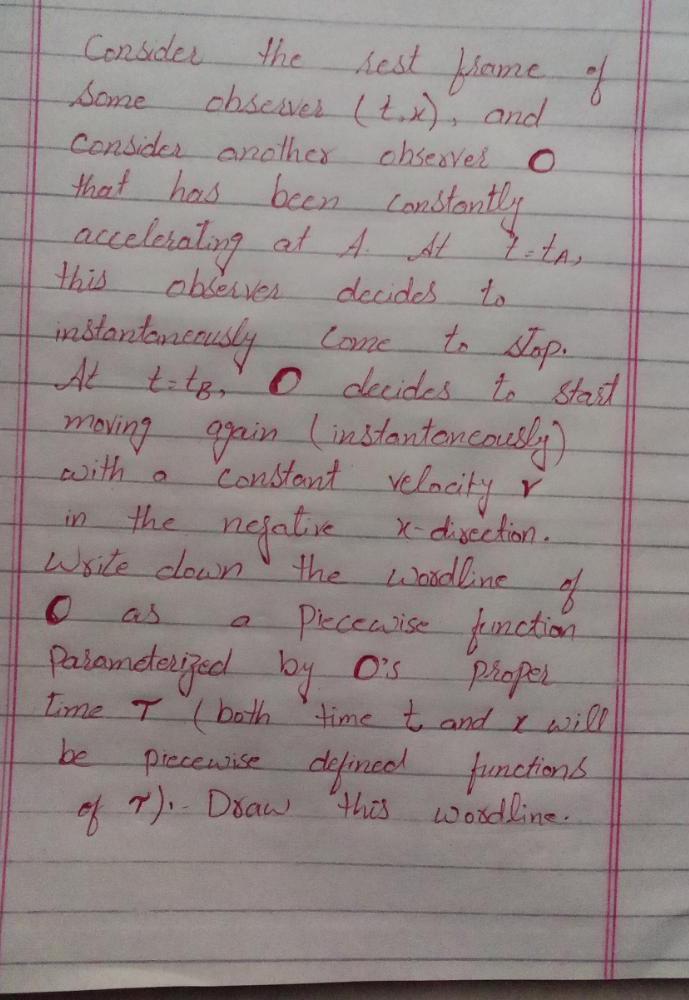 Consider the rest frame of
some observer (t,x), and
consider another observer O
that has been constantly
accelerating at A. At t=tA,
this observer decides to
instantaneously come to stop.
At t=tB, O decides to start
moving again (instantaneously)
with a constant velocity v
in the negative x-direction.
Write down the wordline of
O as a piecewise function
parameterized by O's proper
time τ (both time t and x will
be piecewise defined functions
of τ). Draw this wordline.